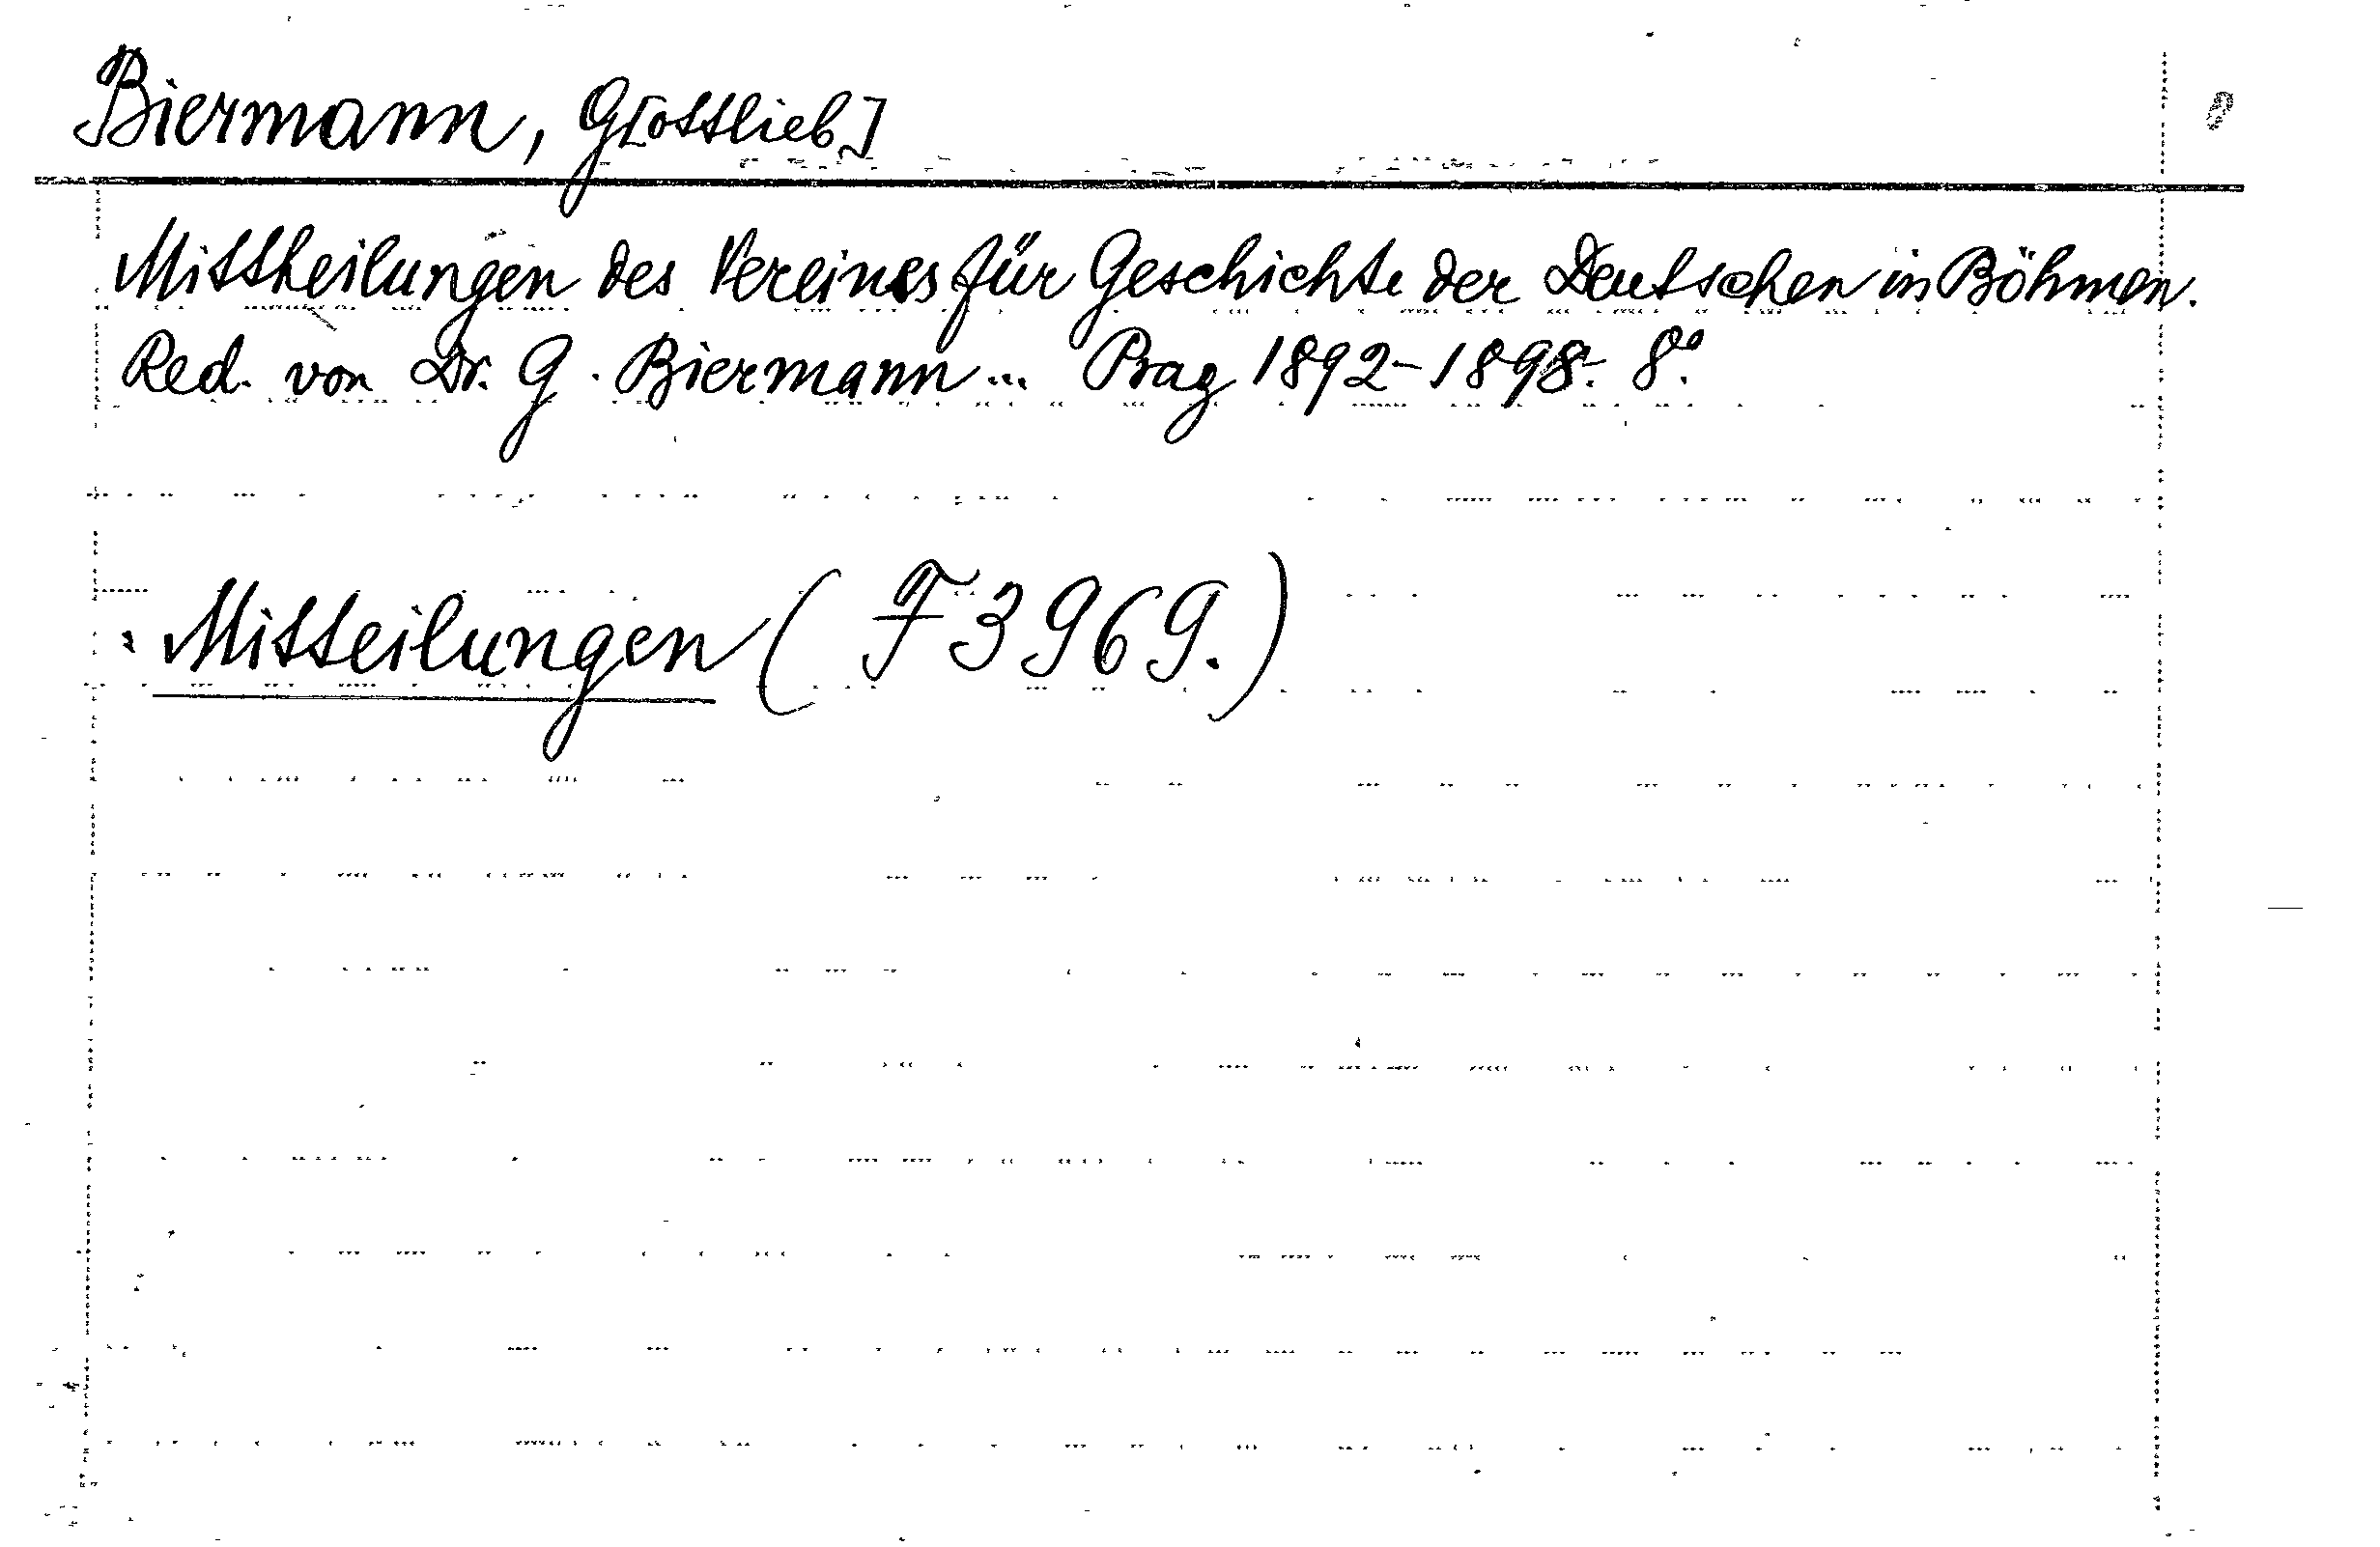 Biermann, G[ottlieb]
Mittheilungen des Vereines für Geschichte der Deutschen in Böhmen.
Red. von Dr. G. Biermann... Prag 1892-1898. 8°.
Mitteilungen (F 3969.)